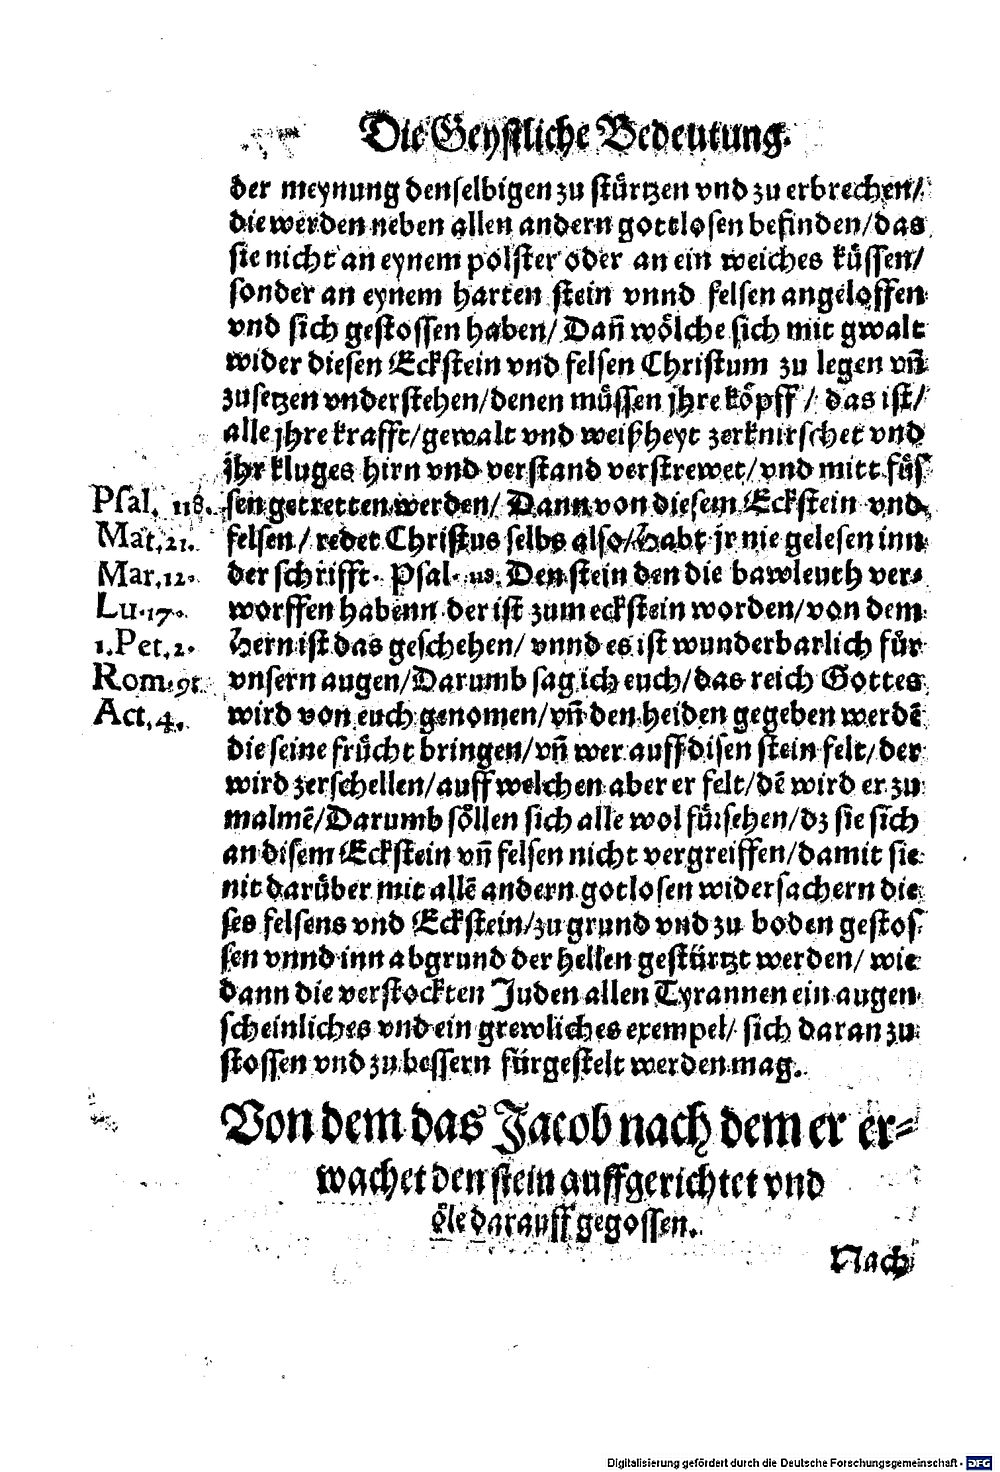 Die Geystliche Bedeutung.
der meynung denselbigen zu stürtzen vnd zu erbrechen/
die werden neben allen andern gottlosen befinden/das
sie nicht an eynem polster oder an ein weiches küssen/
sonder an eynem harten stein vnnd felsen angeloffen
vnd sich gestossen haben/ Dañ wölche sich mit gwalt
wider diesen Eckstein vnd felsen Christum zu legen vñ
zusetzen vnderstehen/denen müssen jhre köpff/ das ist/
alle jhre krafft/gewalt vnd weißheyt zerknirschet vnd
jhr kluges hirn vnd verstand verstrewet/vnd mitt füs
Psal. 118. sen getretten werden/ Dann von diesem Eckstein vnd
Mat.21. felsen/ redet Christus selbs also/Habt jr nie gelesen inn
Mar.12. der schrifft. Psal. 118. Den stein den die bawleuth ver-
Lu.17. worffen habenn der ist zum eckstein worden/von dem
1.Pet.2. Hern ist das geschehen/ vnnd es ist wunderbarlich für
Rom.9. vnsern augen/Darumb sag ich euch/das reich Gottes
Act.4. wird von euch genomen/vñ den heiden gegeben werdē
die seine frücht bringen/vñ wer auff disen stein felt/der
wird zerschellen/auff welchen aber er felt/dē wird er zu
malmē/Darumb söllen sich alle wol fürsehen/dz sie sich
an disem Eckstein vñ felsen nicht vergreiffen/damit sie
nit darüber mit allē andern gotlosen widersachern die
ses felsens vnd Eckstein/zu grund vnd zu boden gestos
sen vnnd inn abgrund der hellen gestürtzt werden/ wie
dann die verstockten Juden allen Tyrannen ein augen
scheinliches vnd ein grewliches exempel/ sich daran zu
stossen vnd zu bessern fürgestelt werden mag.
Von dem das Jacob nach dem er er-
wachet den stein auffgerichtet vnd
öle darauff gegossen.
Nach
Digitalisierung gefördert durch die Deutsche Forschungsgemeinschaft - DFG